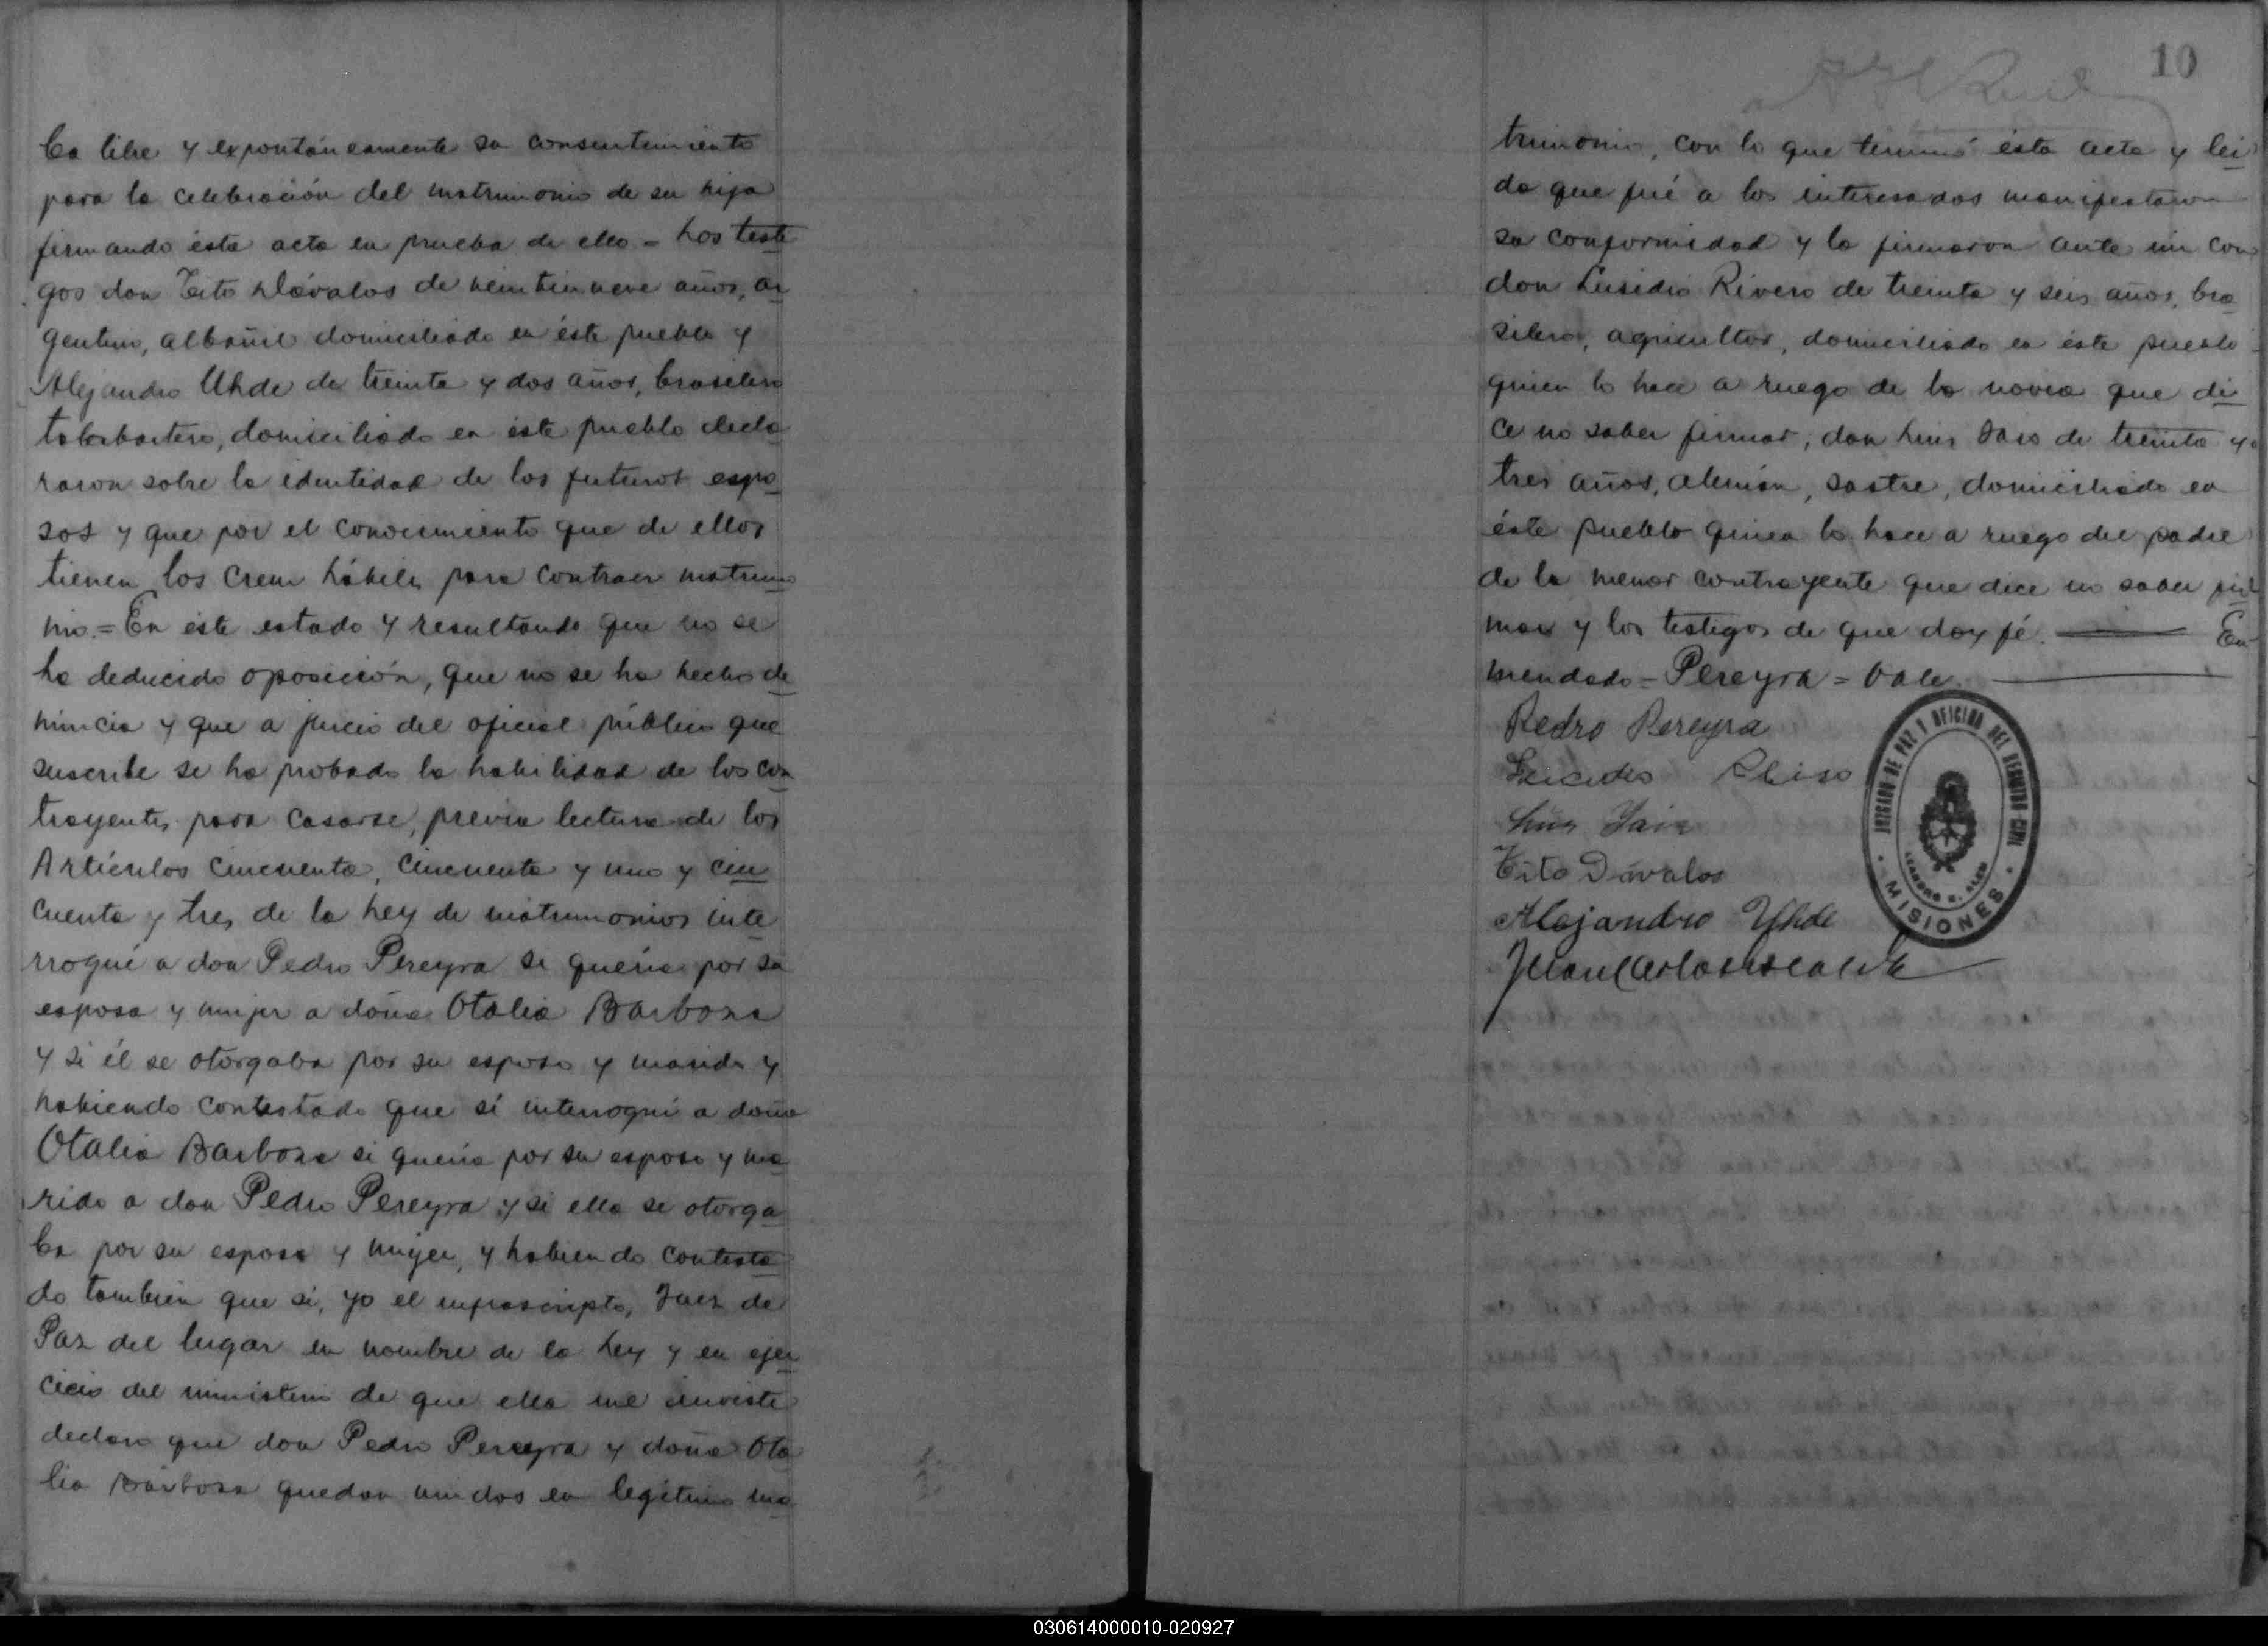 ba libre y expontáneamente su consentimiento
para la celebración del matrimonio de su hija
firmando ésta acta en prueba de ello = Los testi
gos don Tito Dávalos de veintinueve años, ar
gentino, albañil domiciliado en éste pueblo y
Alejandro Uhde de treinta y dos años, brasilero
talabartero, domiciliado en éste pueblo decla
raron sobre la identidad de los futuros espo
sos y que por el conocimiento que de ellos
tienen los creen hábiles para contraer matrimo
nio. = En éste estado y resultando que no se
ha deducido oposición, que no se ha hecho de
nuncia y que a juicio del oficial público que
suscribe se ha probado la habilidad de los con
trayentes para casarse, previa lectura de los
Artículos cincuenta, cincuenta y uno y cin
cuenta y tres de la Ley de matrimonios inte
rrogué a don Pedro Pereyra si quería por su
esposa y mujer a doña Otalia Barboza
y si él se otorgaba por su esposo y marido y
habiendo contestado que sí interrogué a doña
Otalia Barboza si quería por su esposo y ma
rido a don Pedro Pereyra y si ella se otorga
ba por su esposa y mujer, y habiendo contesta
do también que sí, yo el infrascripto, Juez de
Paz del lugar en nombre de la Ley y en ejer
cicio del ministerio de que ella me inviste
declaro que don Pedro Pereyra y doña Ota
lia Barboza quedan unidos en legítimo ma
10
trimonio, con lo que terminó ésta acta y lei
da que fué a los interesados manifestaron
su conformidad y la firmaron ante mi con
don Lusidio Rivero de treinta y seis años, bra
silero, agricultor, domiciliado en éste pueblo
quien lo hace a ruego de la novia que di
ce no saber firmar; don Luis de treinta y
tres años, alemán, sastre, domiciliado en
éste pueblo quien lo hace a ruego del padre
de la menor contrayente que dice no saber fir
mar y los testigos de que doy fé. En
mendado = Pereyra = Vale.
Pedro Pereyra
Luis
Tito Dávalos
Alejandro Uhde
JUZGADO DE PAZ Y OFICINA DEL REGISTRO CIVIL
LEANDRO N. ALEM
MISIONES
030614000010-020927